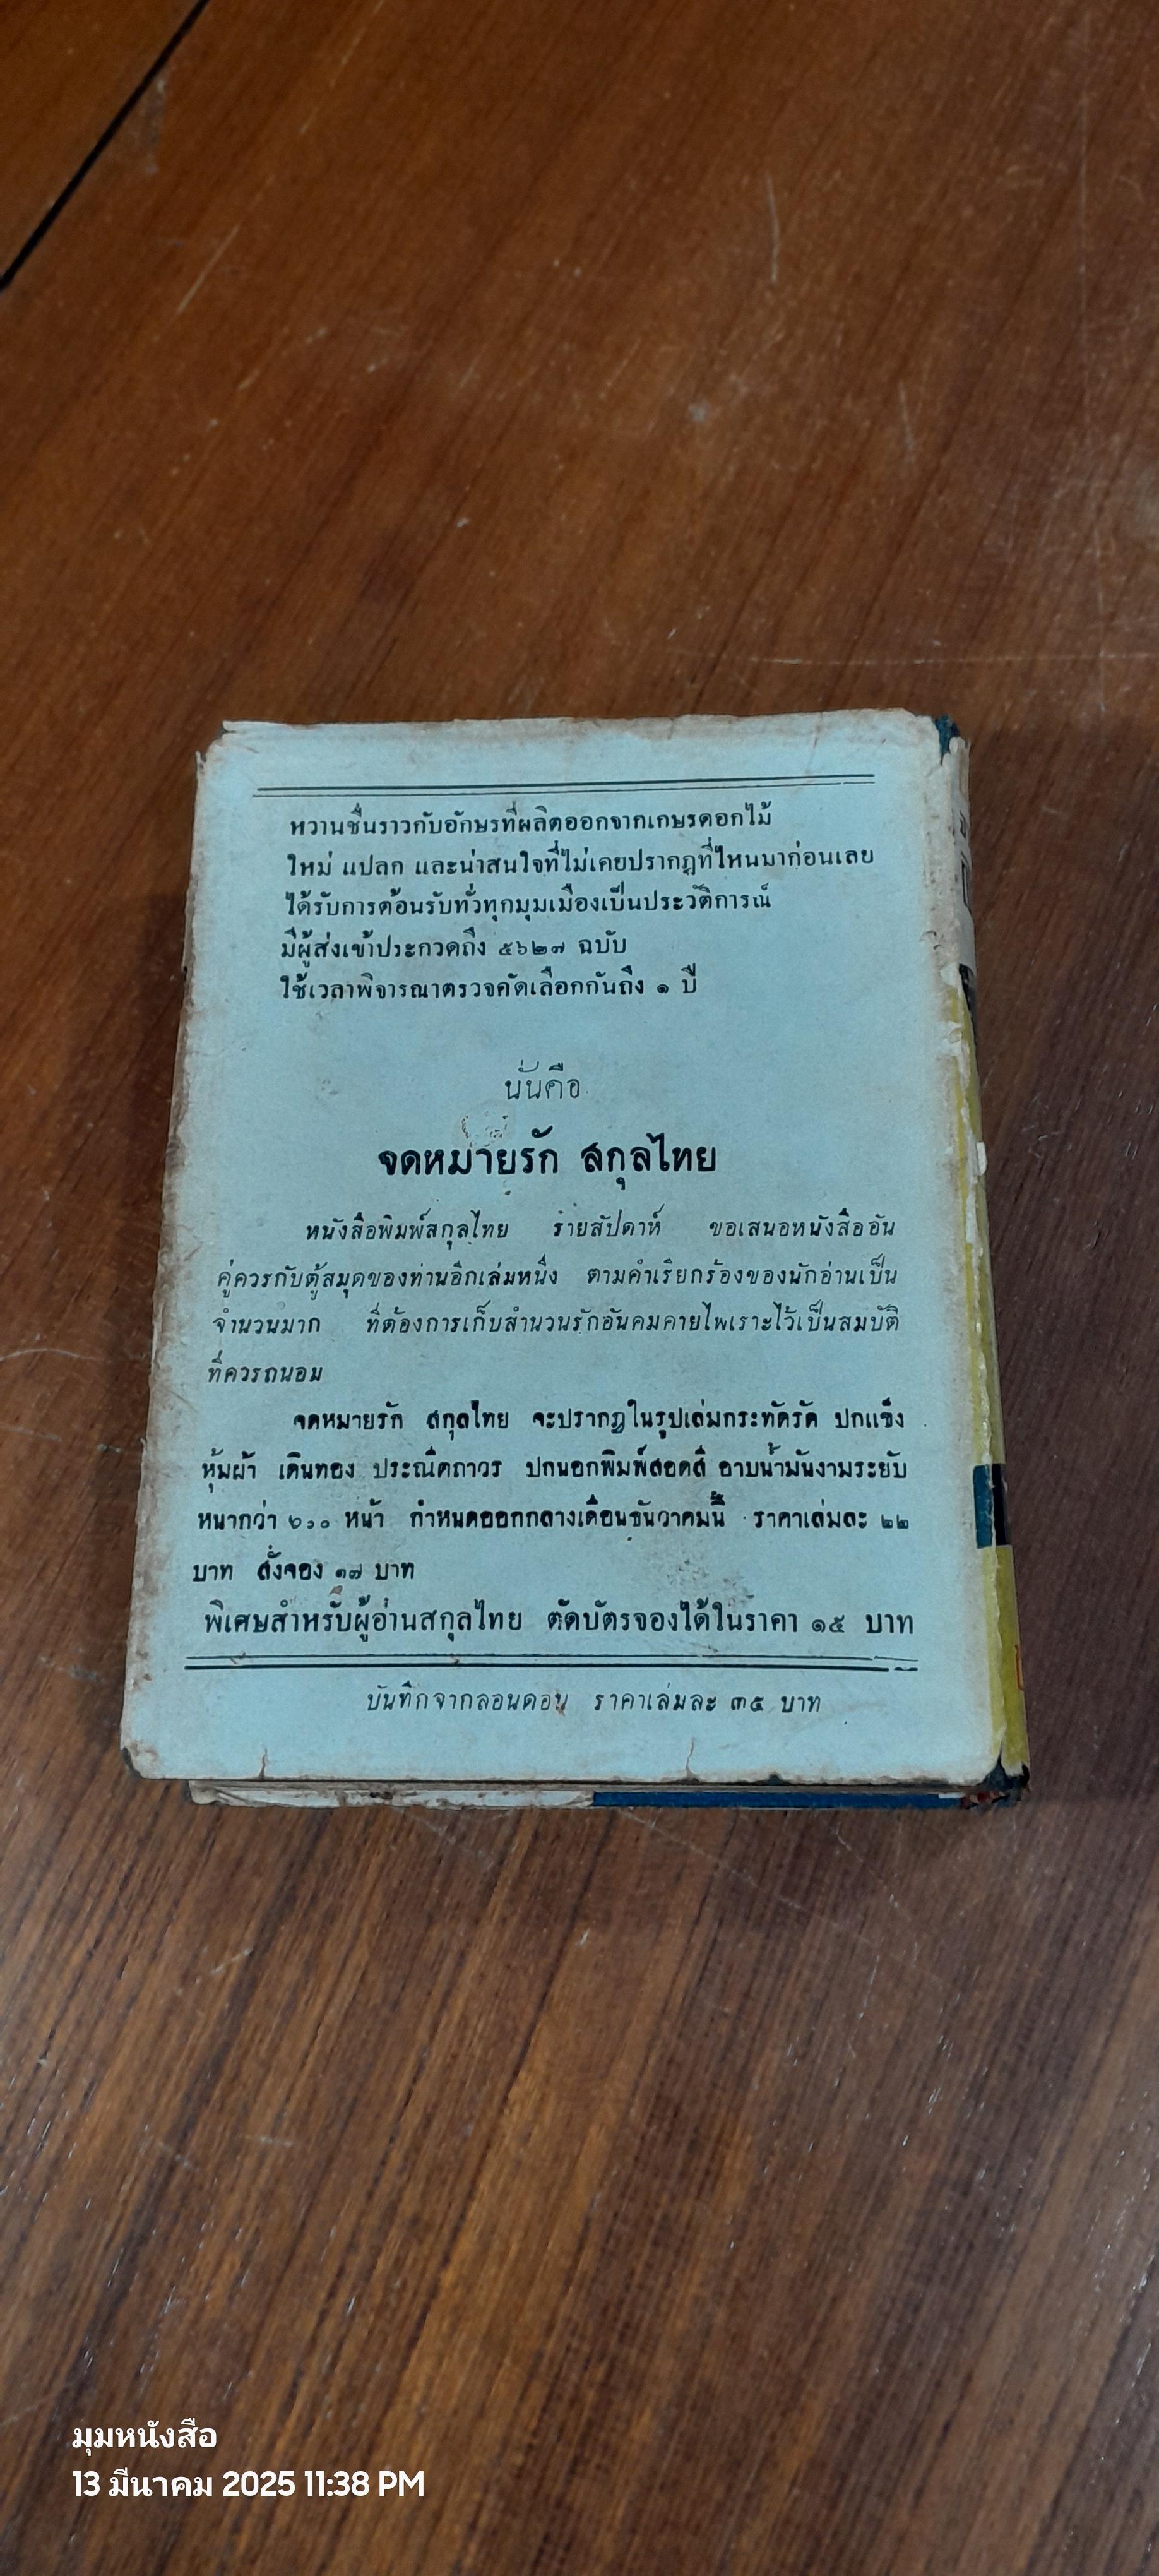 หวานชื่นราวกับอักษรที่ผลิตออกจากเกษรดอกไม้
ใหม่ แปลก และน่าสนใจที่ไม่เคยปรากฏที่ไหนมาก่อนเลย
ได้รับการต้อนรับทั่วทุกมุมเมืองเป็นประวัติการณ์
มีผู้ส่งเข้าประกวดถึง ๕๖๒๗ ฉบับ
ใช้เวลาพิจารณาตรวจคัดเลือกกันถึง ๑ ปี
นั่นคือ
จดหมายรัก สกุลไทย
หนังสือพิมพ์สกุลไทย รายสัปดาห์ ขอเสนอหนังสืออัน
คู่ควรกับตู้สมุดของท่านอีกเล่มหนึ่ง ตามคำเรียกร้องของนักอ่านเป็น
จำนวนมาก ที่ต้องการเก็บสำนวนรักอันคมคายไพเราะไว้เป็นสมบัติ
ที่ควรถนอม
จดหมายรัก สกุลไทย จะปรากฏในรูปเล่มกระทัดรัด ปกแข็ง
หุ้มผ้า เดินทอง ประณีตถาวร ปกนอกพิมพ์สอดสี อาบน้ำมันงามระยับ
หนากว่า หน้า กำหนดออกกลางเดือนธันวาคมนี้ ราคาเล่มละ ๒๒
บาท สั่งจอง ๑๗ บาท
พิเศษสำหรับผู้อ่านสกุลไทย ตัดบัตรจองได้ในราคา ๑๕ บาท
บันทึกจากลอนดอน ราคาเล่มละ ๓๕ บาท
มุมหนังสือ
13 มีนาคม 2025 11:38 PM